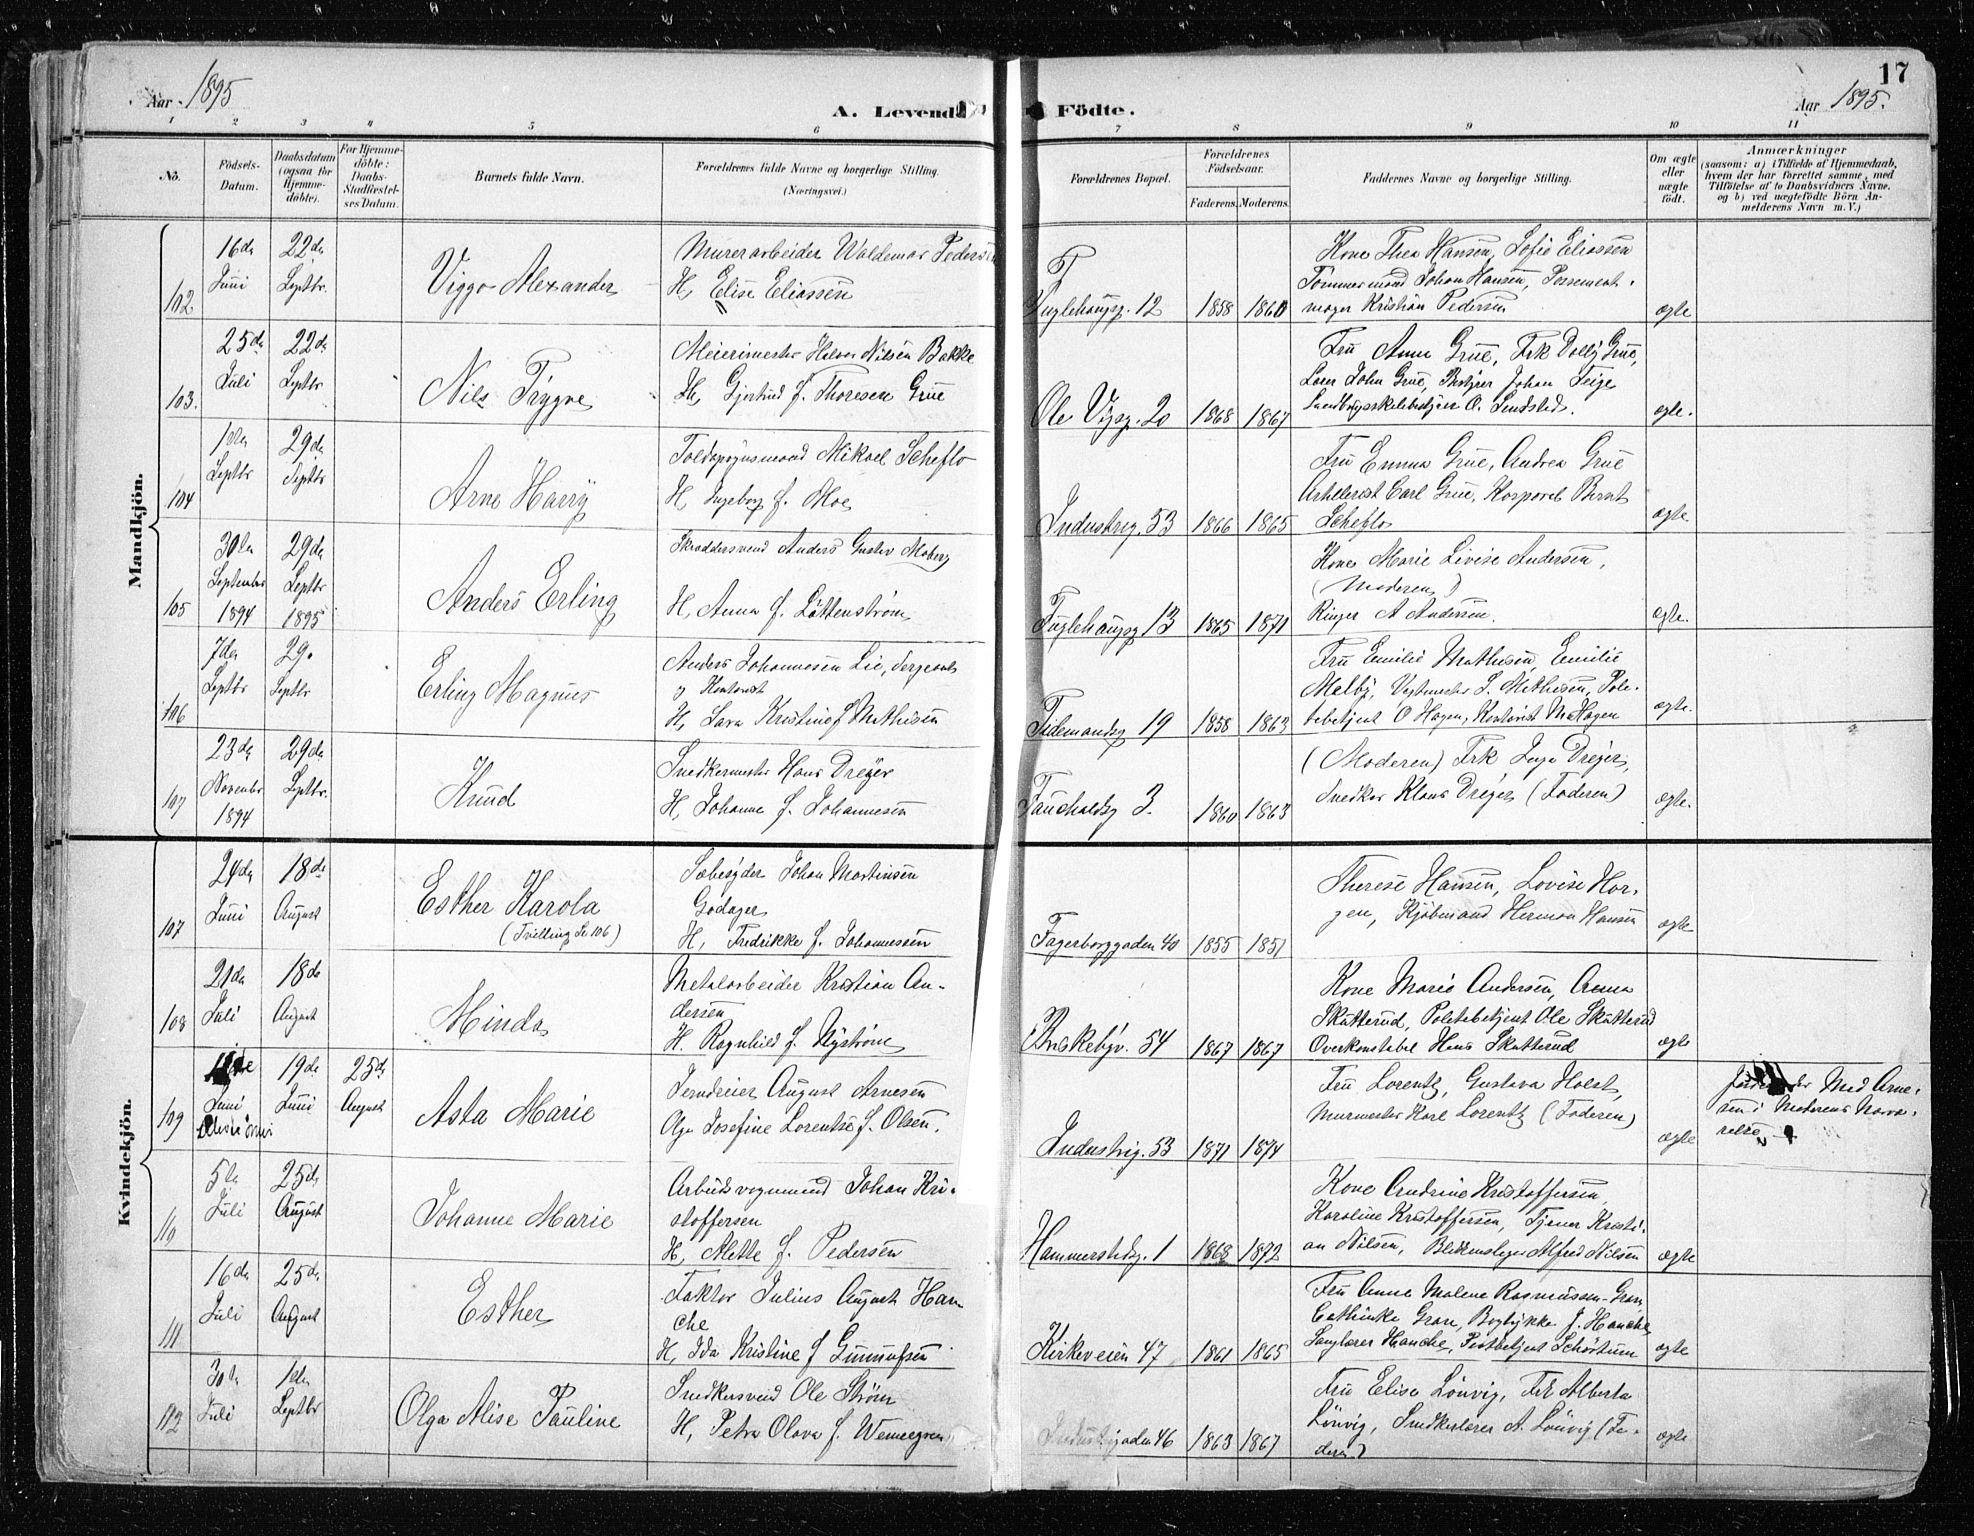 17
Aar 1895
A. Levende Födte.
Aar 1895.
1 2 3 4 5 6 7 8 9 10 11
No.
Födsels-
Datum.
Daabsdatum
(ogsaa for
Hjemme-
döbte).
For Hjemme-
döbte:
Daabs-
Stadfæstel-
ses Datum.
Barnets fulde Navn.
Forældrenes fulde Navne og borgerlige Stilling.
(Næringsvei.)
Forældrenes Bopæl.
Forældrenes
Födselsaar.
Faderens. Moderens.
Faddernes Navne og borgerlige Stilling.
Om ægte
eller
uægte
födt.
Anmærkninger
(saasom: a) i Tilfælde af Hjemmedaab,
hvem der har forrettet samme, med
Tilföielse af to Daabsvidners Navne,
og b) ved uægtefödte Börn An-
melderens Navn m. V.)
Mandkjön.
102
16de
Juni
22de
Septbr.
Viggo Alexander
Murerarbeider Waldemar Pedersen
H, Elise Eliassen
Fuglehaugg. 12
1858 1860
Kone Thea Hansen, Sofie Eliassen
Tømmermand Johan Hansen, Possement-
mager Kristian Pedersen
ægte
103.
25de
Juli
22de
Septbr
Nils Trygve
Meierimester Halvor Nilsen Bakke
H, Gjertrud f. Thoresen Grue
Ole Vigsg. 20
1868 1867
Fru Anna Grue, Frk Dolly Grue,
Lærer John Grue, Bestyrer Johan Teige
Landbrugsskolebestyrer O. Sendstad.
ægte.
104
1ste
Septbr
29de
Septbr
Arne Harry
Toldopsynsmand Mikael Scheflo
H, Ingeborg f. Moe
Industrig. 53
1866 1865
Fru Emma Grue, Andrea Grue
Arkitekt Carl Grue, Korporal Bernt
Scheflo
ægte
105
30te
September
1894
29de
Septbr
1895
Anders Erling
Skræddersvend Anders Gustav Moberg
H, Anna f. Låttenström
Fuglehaugg 13
1865 1871
Kone Marie Lovise Andersen,
(Moderen)
Ringer A Andersen.
ægte.
106
7de
Septbr
29.
Septbr
Erling Magnus
Anders Johannesen Lie, Sergeant
og Kontorist
H, Sara Kristine f Mathisen
Tidemandsg 19
1858 1863
Fru Emilie Mathisen, Emilie
Melby, Vagtmester S. Mathisen, Poli-
tibetjent O Hagen, Kontorist M Hagen
ægte.
107
23de
Novembr
1894
29de
Septbr.
Knud
Snedkermester Hans Dreyer
H, Johanne f. Johannesen
Fauchaldsg 3.
1860 1863
(Moderen) Frk Inga Dreyer,
Snedker Klaus Dreyer (Faderen)
ægte.
Kvindekjön.
107
24de
Juni
18de
August
Esther Karola
(Tvilling Se 106)
Sæbesyder Johan Martinsen
Godager
H, Fredrikke f. Johannessen
Fagerborggaden 40
1855 1851
Therese Hansen, Lovise Hor-
gen, Kjøbmand Herman Hansen
ægte
108
21de
Juli
18de
August
Minda
Metalarbeider Kristian An-
dersen
H. Ragnhild f. Nyström
Briskebyv. 54
1867 1867
Kone Marie Andersen, Anna
Skatterud, Politibetjent Ole Skatterud
Overkonstabel Hans Skatterud
ægte
109
Juni
19de
Juni
25de
August
Asta Marie
Jerndreier August Arnesen
Olga Josefine Lorentze f. Olsen.
Industrig. 53
1871 1874
Fru Lorentz, Gustava Holst,
Murmester Karl Lorentz (Faderen)
ægte
Med Arne-
sen i Moderens Nærvæ-
relse
110
5te
Juli
25de
August
Johanne Marie
Arbeidsvognmand Johan Kri-
stoffersen
H, Mette f. Pedersen
Hammerstadg. 1
1868 1872
Kone Andrine Kristoffersen,
Karoline Kristoffersen, Tjener Kristi-
an Nilsen, Blikkenslager Alfred Nilsen
ægte
111
16de
Juli
25de
August
Esther
Faktor Julius August Han-
che
H, Ida Kristine f Gunnufsen
Kirkeveien 47
1861 1865
Fru Anna Malene Rasmussen-Gran,
Cathinka Gran, Bogtrykker J. Hanche,
Sanglærer Hanche, Postbetjent Schötum
ægte
112
30te
Juli
1ste
Septbr
Olga Alise Pauline
Snedkersvend Ole Strøm
H, Petra Olava f. Wennegren
Industrigaden 46
1863 1867
Fru Elise Lönvig, Frk Alberta
Lönvig, Snedkerlærer A. Lönvig (Fa-
deren)
ægte